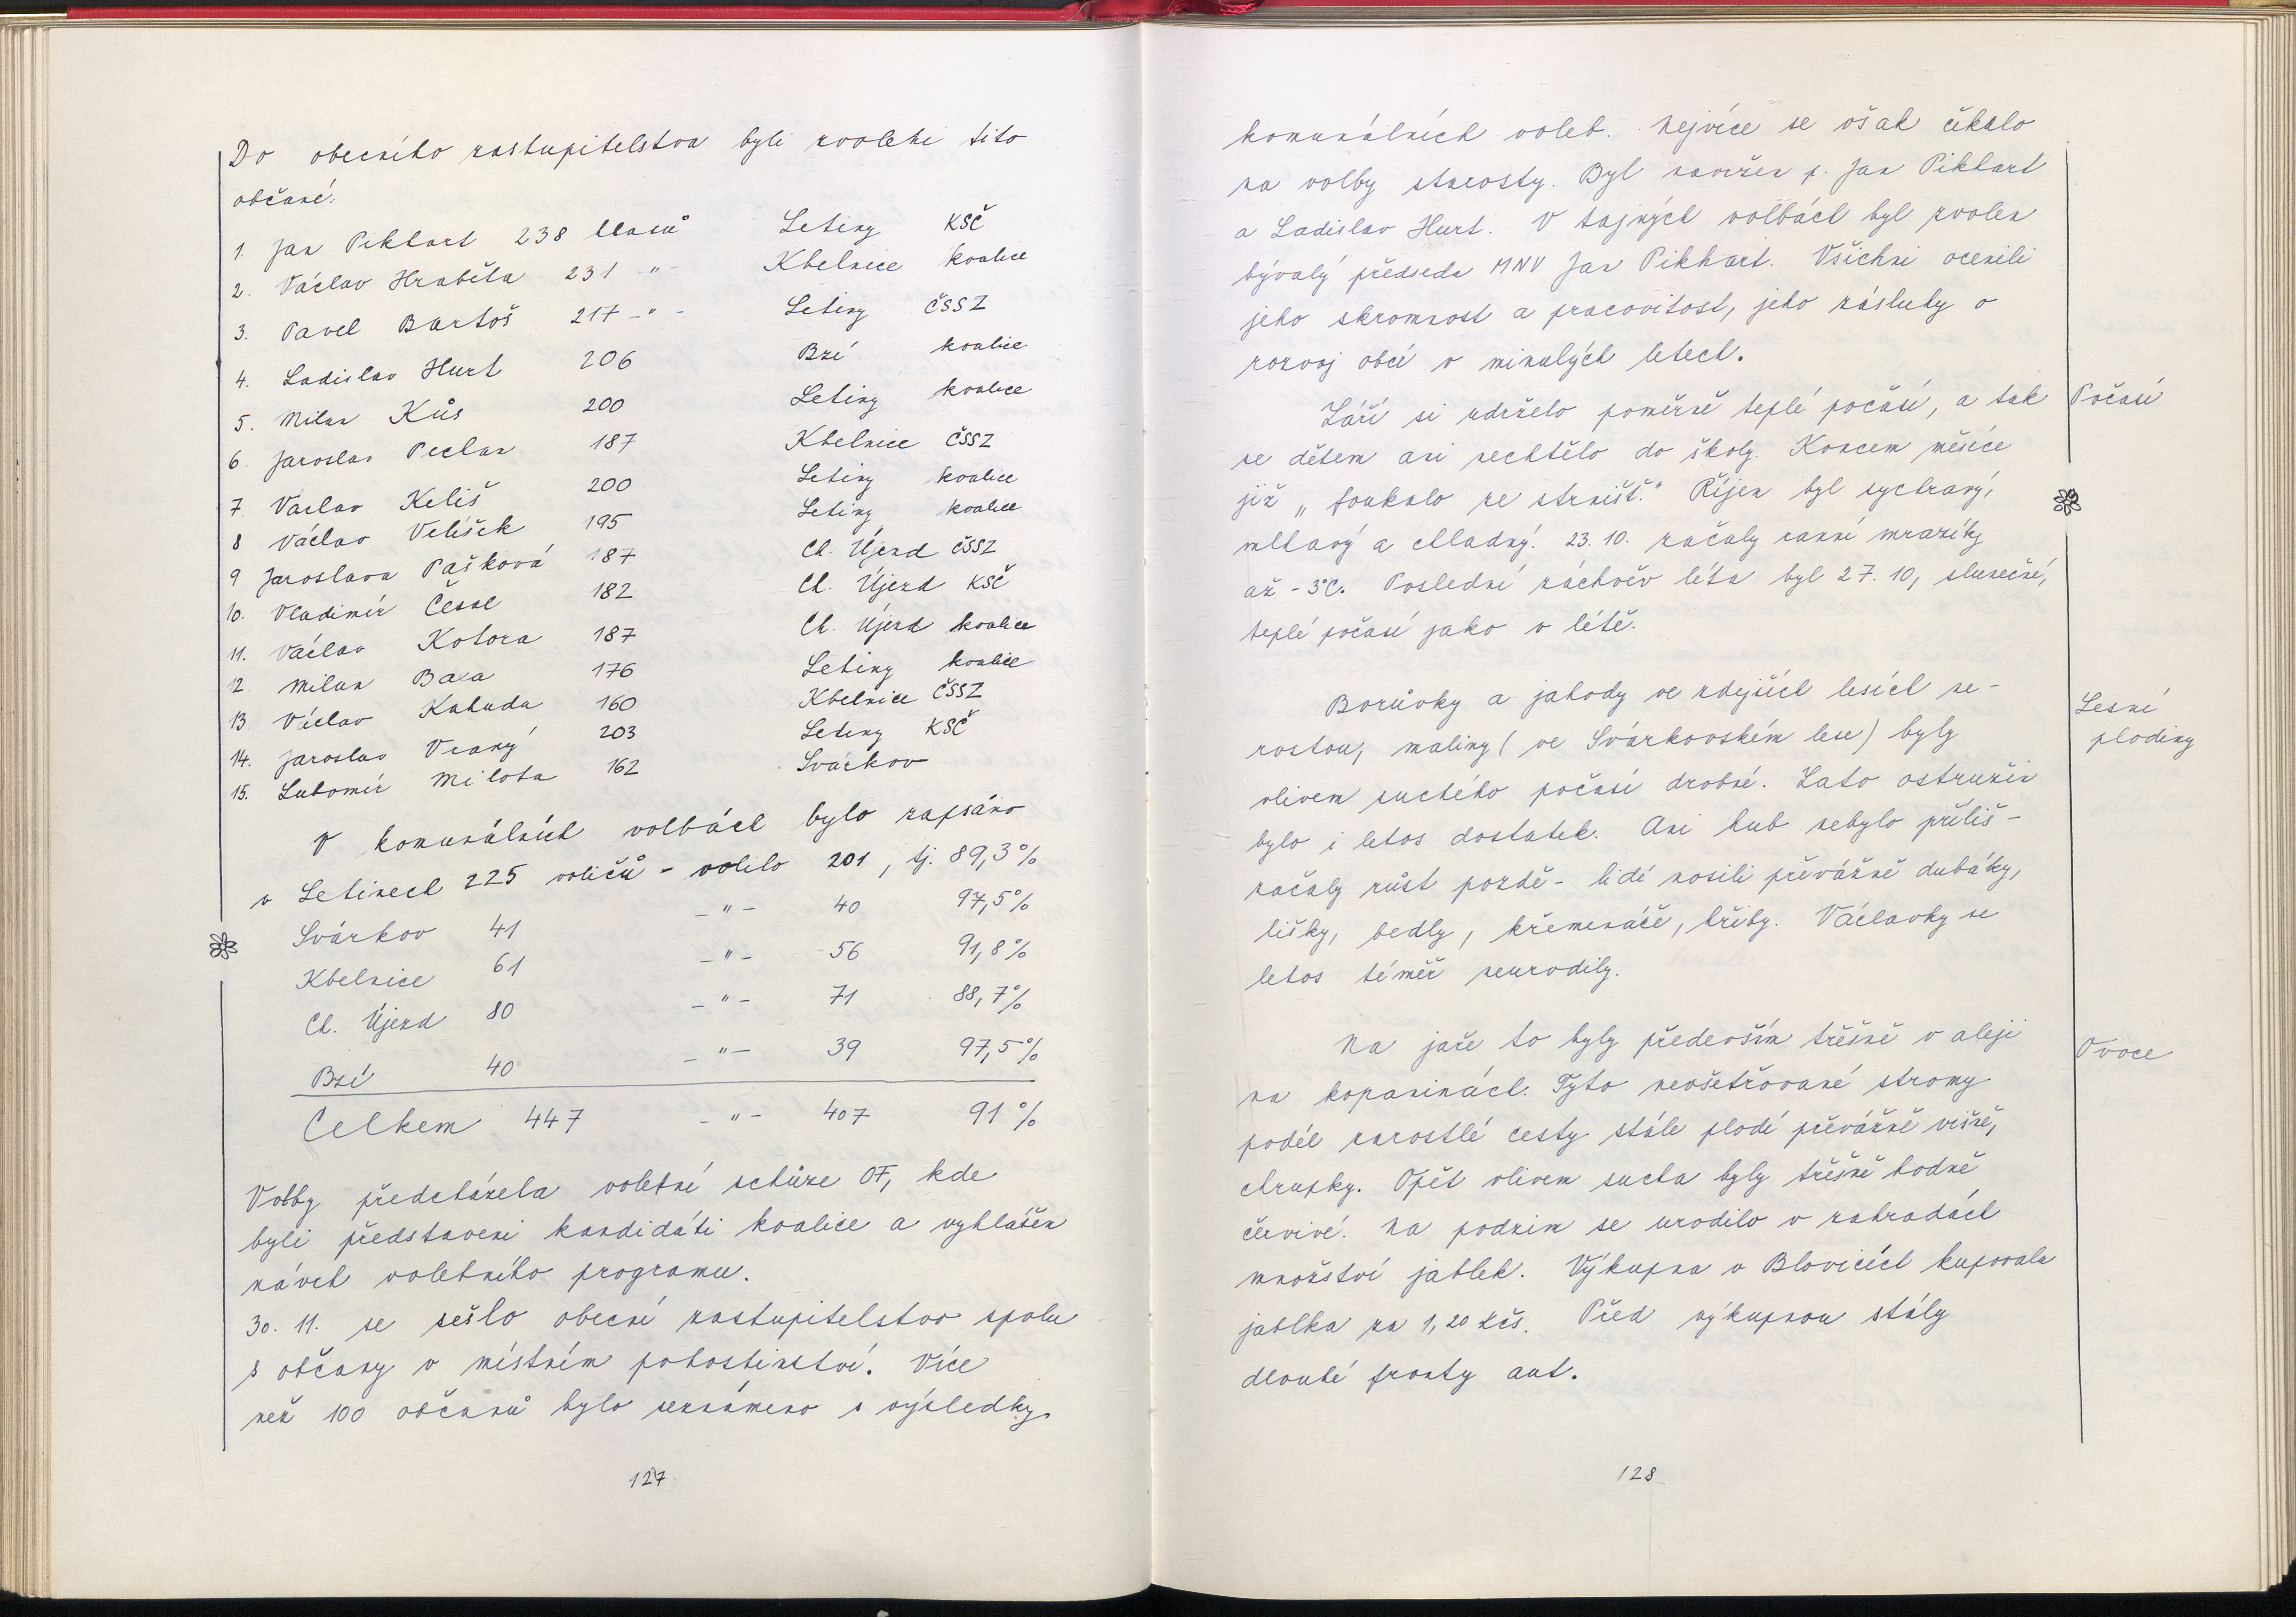 Do obecního zastupitelstva byli zvoleni tito
občané:
1. Jan Pikhart 238 hlasů Letiny KSČ
2. Václav Hraběta 231 -"- Kbelnice koalice
3. Pavel Bartoš 217 -"- Letiny ČSSZ
4. Ladislav Hurt 206 Bzí koalice
5. Milan Kůs 200 Letiny koalice
6. Jaroslav Pechan 187 Kbelnice ČSSZ
7. Václav Keliš 200 Letiny koalice
8 Václav Velíšek 195 Letiny koalice
9 Jaroslava Pašková 187 Ch. Újezd ČSSZ
10. Vladimír Česal 182 Ch. Újezd KSČ
11. Václav Kotora 187 Ch. Újezd koalice
12. Milan Baxa 176 Letiny koalice
13 Václav Kahuda 160 Kbelnice ČSSZ
14. Jaroslav Vraný 203 Letiny KSČ
15. Lubomír Milota 162 Svárkov
V komunálních volbách bylo zapsáno
v Letinech 225 voličů - volilo 201, tj. 89,3%
Svárkov 41 -"- 40 97,5%
Kbelnice 61 -"- 56 91,8%
Ch. Újezd 80 -"- 71 88,7%
Bzí 40 -"- 39 97,5%
Celkem 447 -"- 407 91%
Volby předcházela volební schůze OF, kde
byli představeni kandidáti koalice a vyhlášen
návrh volebního programu.
30. 11. se sešlo obecní zastupitelstvo spolu
s občany v místním pohostinství. Více
než 100 občanů bylo seznámeno s výsledky
127
komunálních voleb. Nejvíce se však čekalo
na volby starosty. Byl navržen p. Jan Pikhart
a Ladislav Hurt. V tajných volbách byl zvolen
bývalý předseda MNV Jan Pikhart. Všichni ocenili
jeho skromnost a pracovitost, jeho zásluhy o
rozvoj obcí v minulých letech.
Počasí
Září si udrželo poměrně teplé počasí, a tak
se dětem ani nechtělo do školy. Koncem měsíce
již „foukalo ze strnišť." Říjen byl sychravý,
mlhavý a chladný. 23. 10. začaly ranní mrazíky
až -3°C. Poslední záchvěv léta byl 27. 10, slunečné,
teplé počasí jako v létě.
Lesní
plodiny
Borůvky a jahody ve zdejších lesích ne-
rostou, maliny (ve Svárkovském lese) byly
vlivem suchého počasí drobné. Zato ostružin
bylo i letos dostatek. Ani hub nebylo příliš -
začaly růst pozdě - lidé nosili převážně dubáky,
lišky, bedly, křemenáče, hřiby. Václavky se
letos téměř neurodily.
Ovoce
Na jaře to byly především třešně v aleji
na kopaninách. Tyto neošetřované stromy
podél zarostlé cesty stále plodí převážně višně,
chrupky. Opět vlivem sucha byly třešně hodně
červivé. Na podzim se urodilo v zahradách
množství jablek. Výkupna v Blovicích kupovala
jablka za 1,20 Kčs. Před výkupnou stály
dlouhé fronty aut.
128